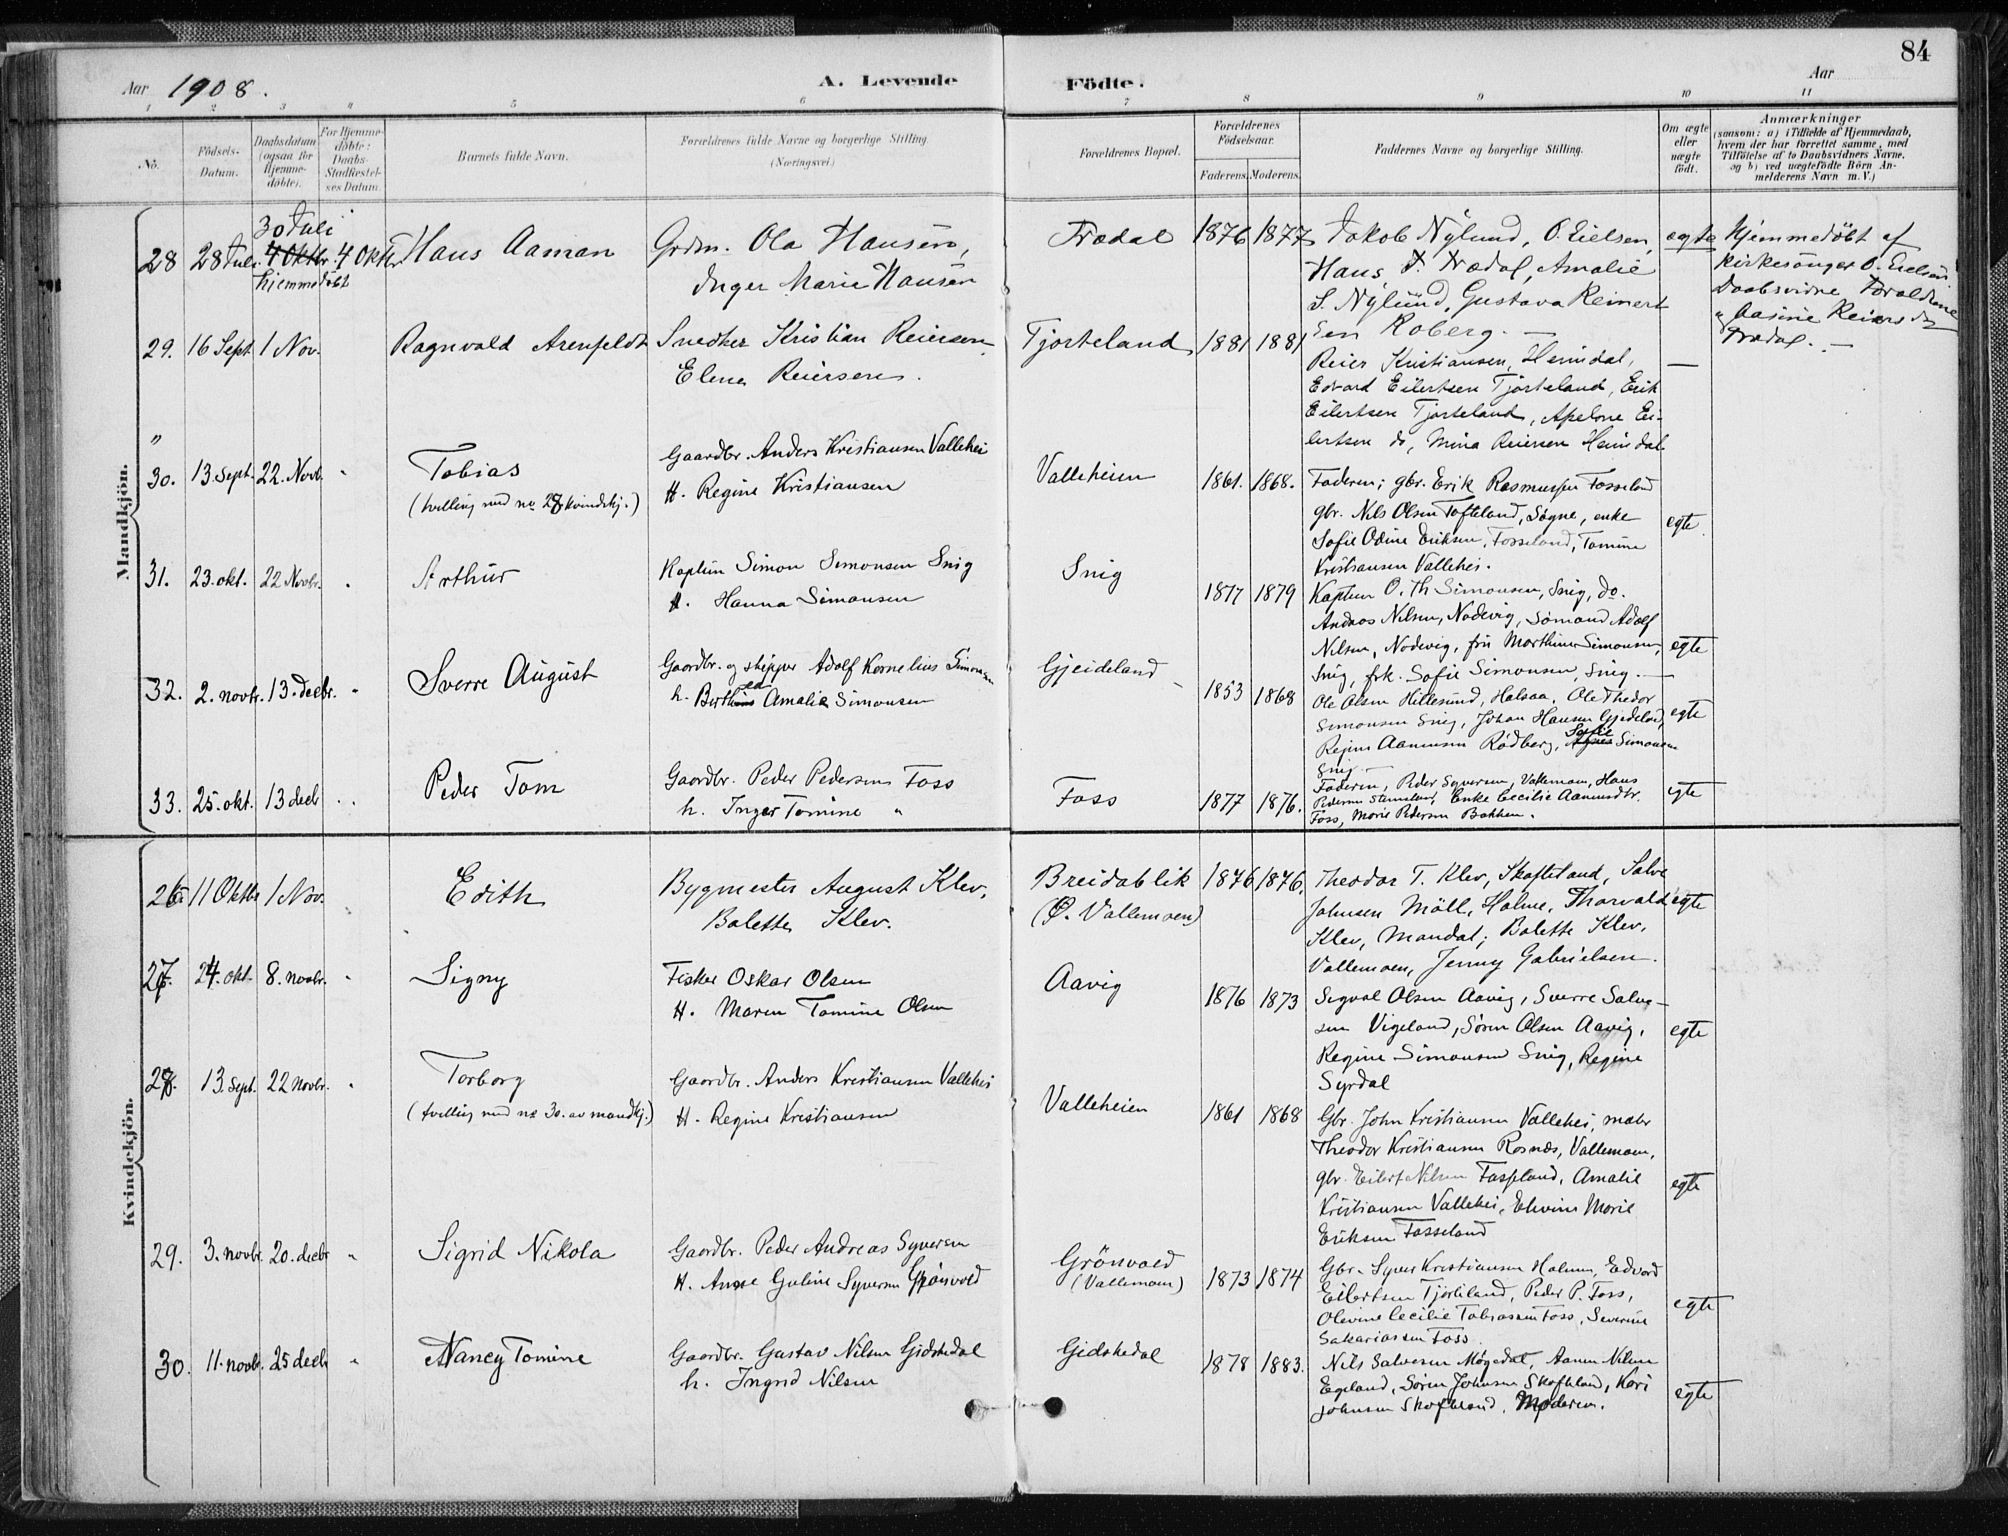 84
Aar 1908.
A. Levende
Födte.
Aar
1 2 3 4 5 6 7 8 9 10 11
No.
Födsels-Datum.
Daabsdatum (ogsaa for Hjemme-döbte).
For Hjemme-döbte: Daabs-Stadfæstel-ses Datum.
Barnets fulde Navn.
Forældrenes fulde Navne og borgerlige Stilling. (Næringsvei.)
Forældrenes Bopæl.
Forældrenes Födselsaar.
Faderens. Moderens.
Faddernes Navne og borgerlige Stilling.
Om ægte eller uægte födt.
Anmærkninger
(saasom: a) i Tilfælde af Hjemmedaab,
hvem der har forrettet samme, med
Tilföielse af to Daabsvidners Navne,
og b) ved uægtefödte Börn An-
melderens Navn m. V.)
Mandkjön.
28 28 Juli 30 Juli 4 Oktbr. hjemmedöbt 4 Oktbr
Hans Aaman
Grdm. Ola Hansen,
Inger Marie Hansen
Trædal
1876 1877
Jakob Nylund, O. Eielsen,
Hans T. Trædal, Amalie
S. Nylund, Gustava Reinert
sen Roberg. —
egte
Hjemmedöbt af
kirkesanger O. Eielsen
Daabsvidne Forældrene
Trædal. —
29. 16 Sept. 1 Nov.
Ragnvald Arenfeldt
Snedker Kristian Reiersen
Elene Reiersen.
Tjorteland
1881 1881
Reier Kristiansen, Heimdal,
Edvard Eilertsen Tjorteland, Erik
Eilertsen Tjorteland, Apelone Ei-
lertsen do, Mina Reiersen Heimdal
—
30. 13. Sept. 22. Novb. "
Tobias
(tvilling med no 28 kvindekj.)
Gaardbr. Anders Kristiansen Vallehei
H. Regine Kristiansen
Valleheien
1861. 1868.
Faderen; gbr. Erik Rasmussen Fosseland
gbr. Nils Olsen Tofteland, Søgne, enke
Sofie Odine Eriksen, Fosseland, Tomine
Kristiansen Vallehei.
egte
31. 23. okt. 22 Novbr. "
Arthur
Kaptein Simon Simonsen Snig
h. Hanna Simonsen
Snig
1877 1879
Kaptein O. Th Simonsen, Snig, do.
Andreas Nilsen, Nodevig, Sømand Adolf
Nilsen, Nodevig, fru Marthine Simonsen,
Snig, frk. Sofie Simonsen, Snig. —
egte
32. 2. novbr. 13. decbr. "
Sverre August
Gaardbr. og skipper Adolf Kornelius Simonsen
h. Amalie Simonsen
Gjeideland
1853 1868
Ole Olsen Hillesund, Halsaa, Ole Thedor
Simonsen Snig, Johan Hansen Gjeideland,
Regine Aanensen Rödberg, Sofie Simonsen
Snig —
egte
33. 25. okt. 13 decb "
Peder Tom
Gaardbr. Peder Pedersen Foss
h. Inger Tomine "
Foss
1877 1876.
Faderen, Peder Syversen, Vallemoen, Hans
Pedersen Stenseland, Enke Cecilie Aanundbr.
Foss, Marie Pedersen Bakken.
egte
Kvindekjön.
26. 11 Oktbr 1 Nov.
Edith
Bygmester August Klev,
Bolette Klev.
Breidablik
(Ø. Vallemoen)
1876 1876.
Theodor T. Klev, Skofteland, Salve
Johnsen Möll, Holme, Thorvald
Klev, Mandal; Bolette Klev,
Vallemoen, Jenny Gabrielsen.
egte
27. 24. okt. 8. novbr. "
Signy
Fisker Oskar Olsen
H. Maren Tomine Olsen
Aavig
1876 1873
Sigval Olsen Aavig, Sverre Salve-
sen Vigeland, Søren Olsen Aavig,
Regine Simonsen Snig, Regine
Syrdal
egte
28. 13. Sept. 22 novbr. "
Torborg
(tvilling med no 30. av mandkj.)
Gaardbr. Anders Kristiansen Vallehei
H. Regine Kristiansen
Valleheien
1861 1868
Gbr. John Kristiansen Vallehei, maler
Theodor Kristiansen Rosnæs, Vallemoen,
gbr. Eilert Nilsen Fosseland, Amalie
Kristiansen Vallehei, Elevine Marie
Eriksen Fosseland
egte
29. 3. novbr. 20. decbr "
Sigrid Nikola
Gaardbr. Peder Andreas Syversen
H. Anne Guline Syversen Grönvold
Grönvold
(Vallemoen)
1873 1874
Gbr. Syver Kristiansen Holmen, Edvard
Eilertsen Tjorteland, Peder P. Foss,
Olevine Cecilie Tobiassen Foss, Severine
Sakariassen Foss
egte
30. 11. novbr. 25 decb "
Nancy Tomine
Gaardbr. Gustav Nilsen Gidskedal
h. Ingrid Nilsen
Gidskedal
1878 1883.
Nils Salvesen Møgedal, Aanen Nilsen
Egeland, Søren Johnsen Skofteland, Kari
Johnsen Skofteland, Moderen.
egte